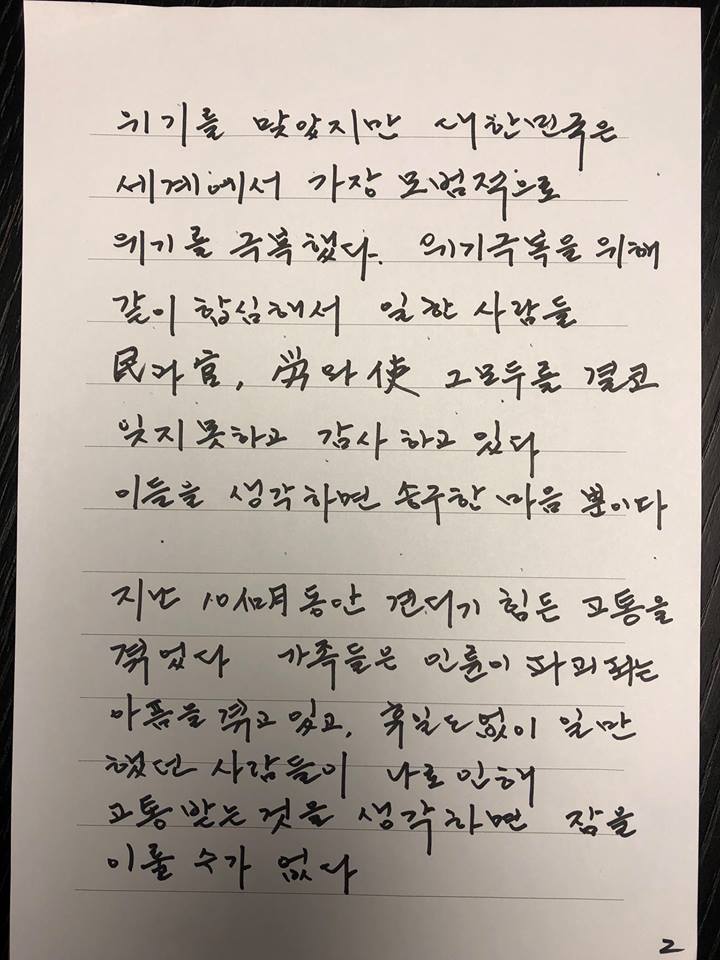 위기를 맞았지만 대한민국은
세계에서 가장 모범적으로
위기를 극복했다. 위기극복을 위해
같이 합심해서 일한 사람들
民과 官, 労와 使 그모두를 결코
잊지못하고 감사하고 있다
이들을 생각하면 송구한 마음 뿐이다
지난 10個月동안 견디기 힘든 고통을
겪었다 가족들은 인륜이 파괴되는
아픔을 겪고 있고, 휴일도 없이 일만
했던 사람들이 나로 인해
고통받는 것을 생각하면 잠을
이룰 수가 없다
2